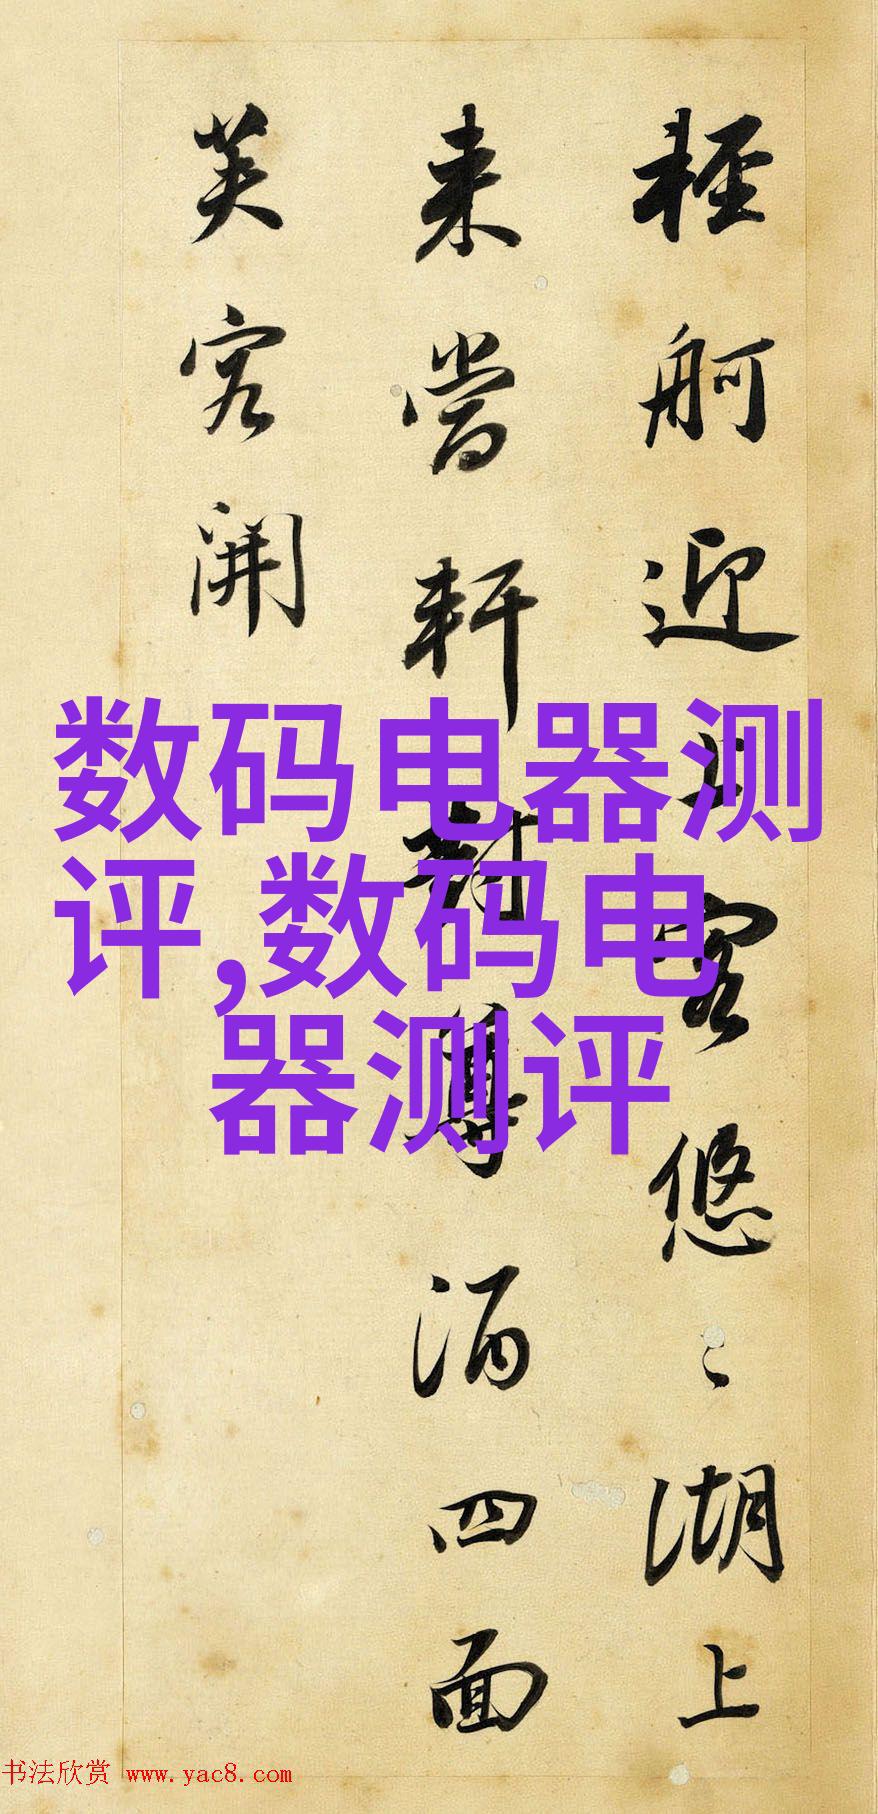 輕舸迎上客悠々湖上
来當軒對尊酒四面
芙容開
数码电器测
评,数码电
器测评
书法欣赏 www.yac8.com